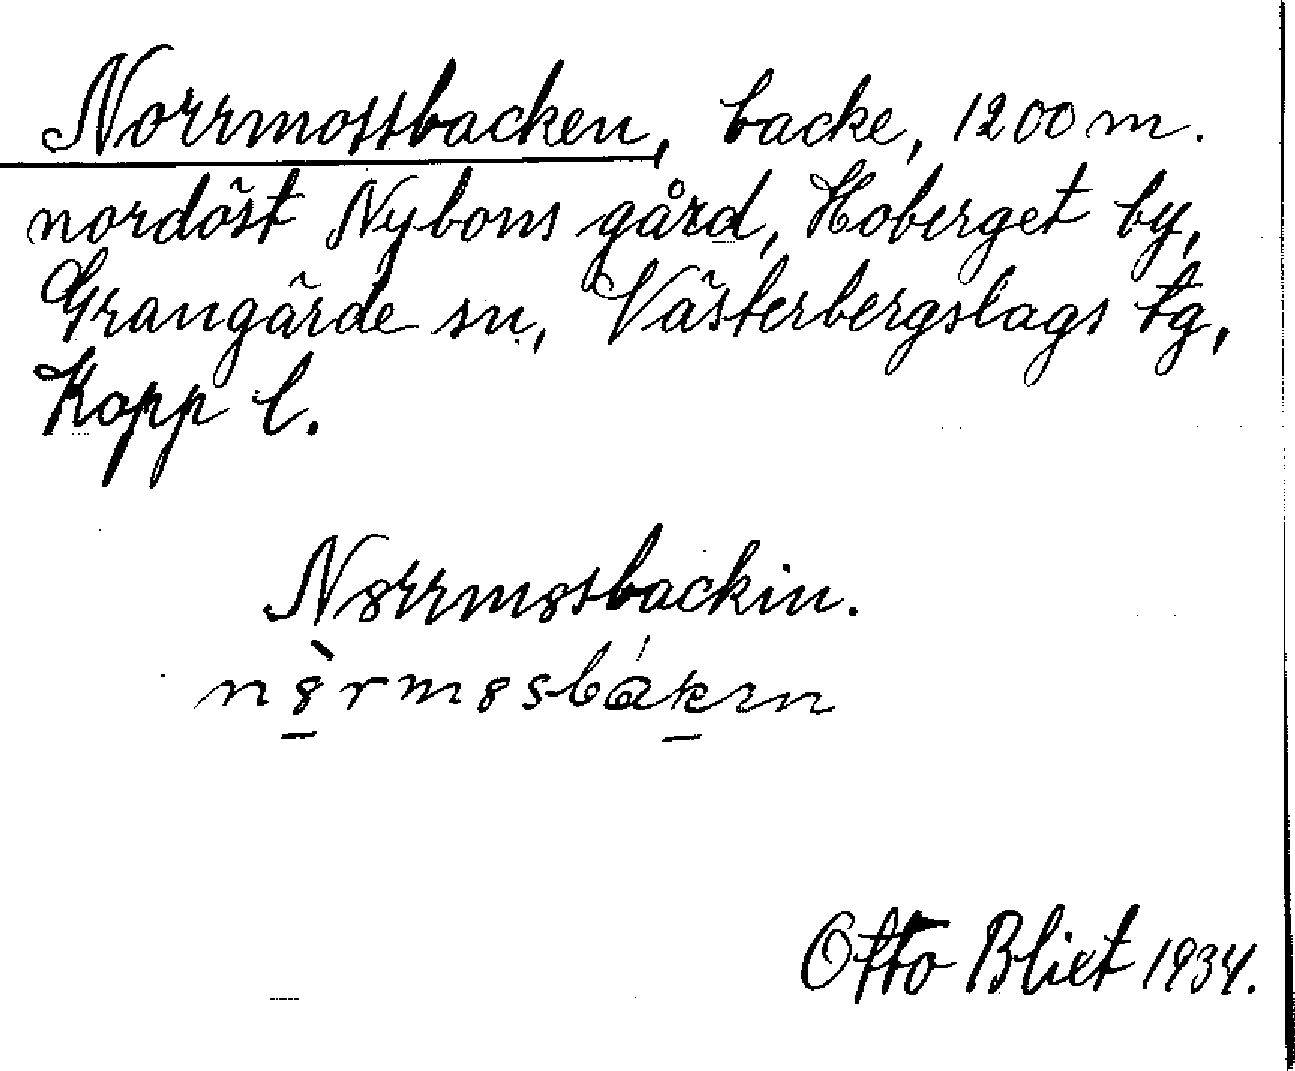 Norrmossbacken, backe, 1200 m.
nordöst Nybons gård, Hoberget by,
Grangärde sn, Västerbergslags tg,
Kopp l.
Nȣrrmȣsbackin.
nȣ̀rmȣsbákın
Otto Blixt 1934.